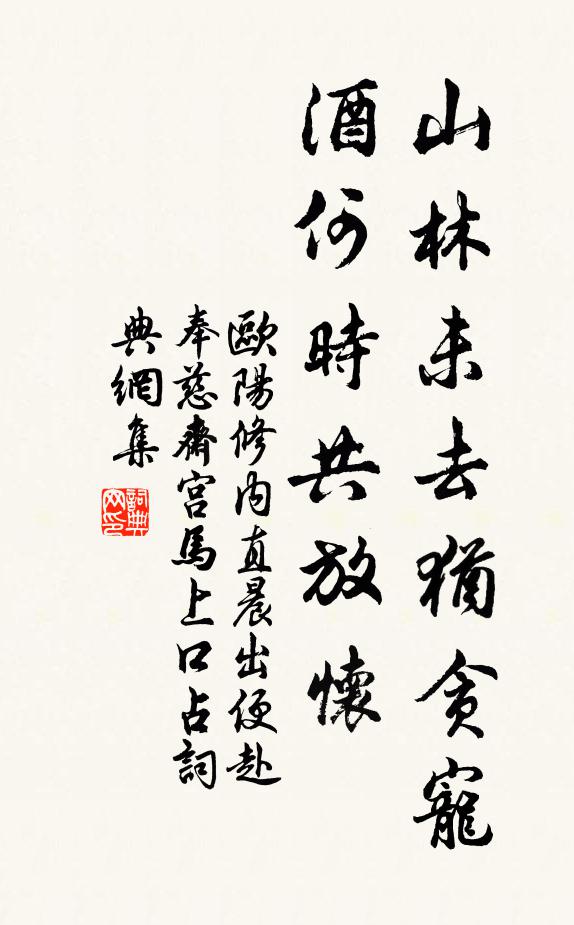 山林未去猶貪寵
酒何時共放懷
歐陽修內直晨出便赴
奉慈齋宮馬上口占詞
典網集
詞典網印